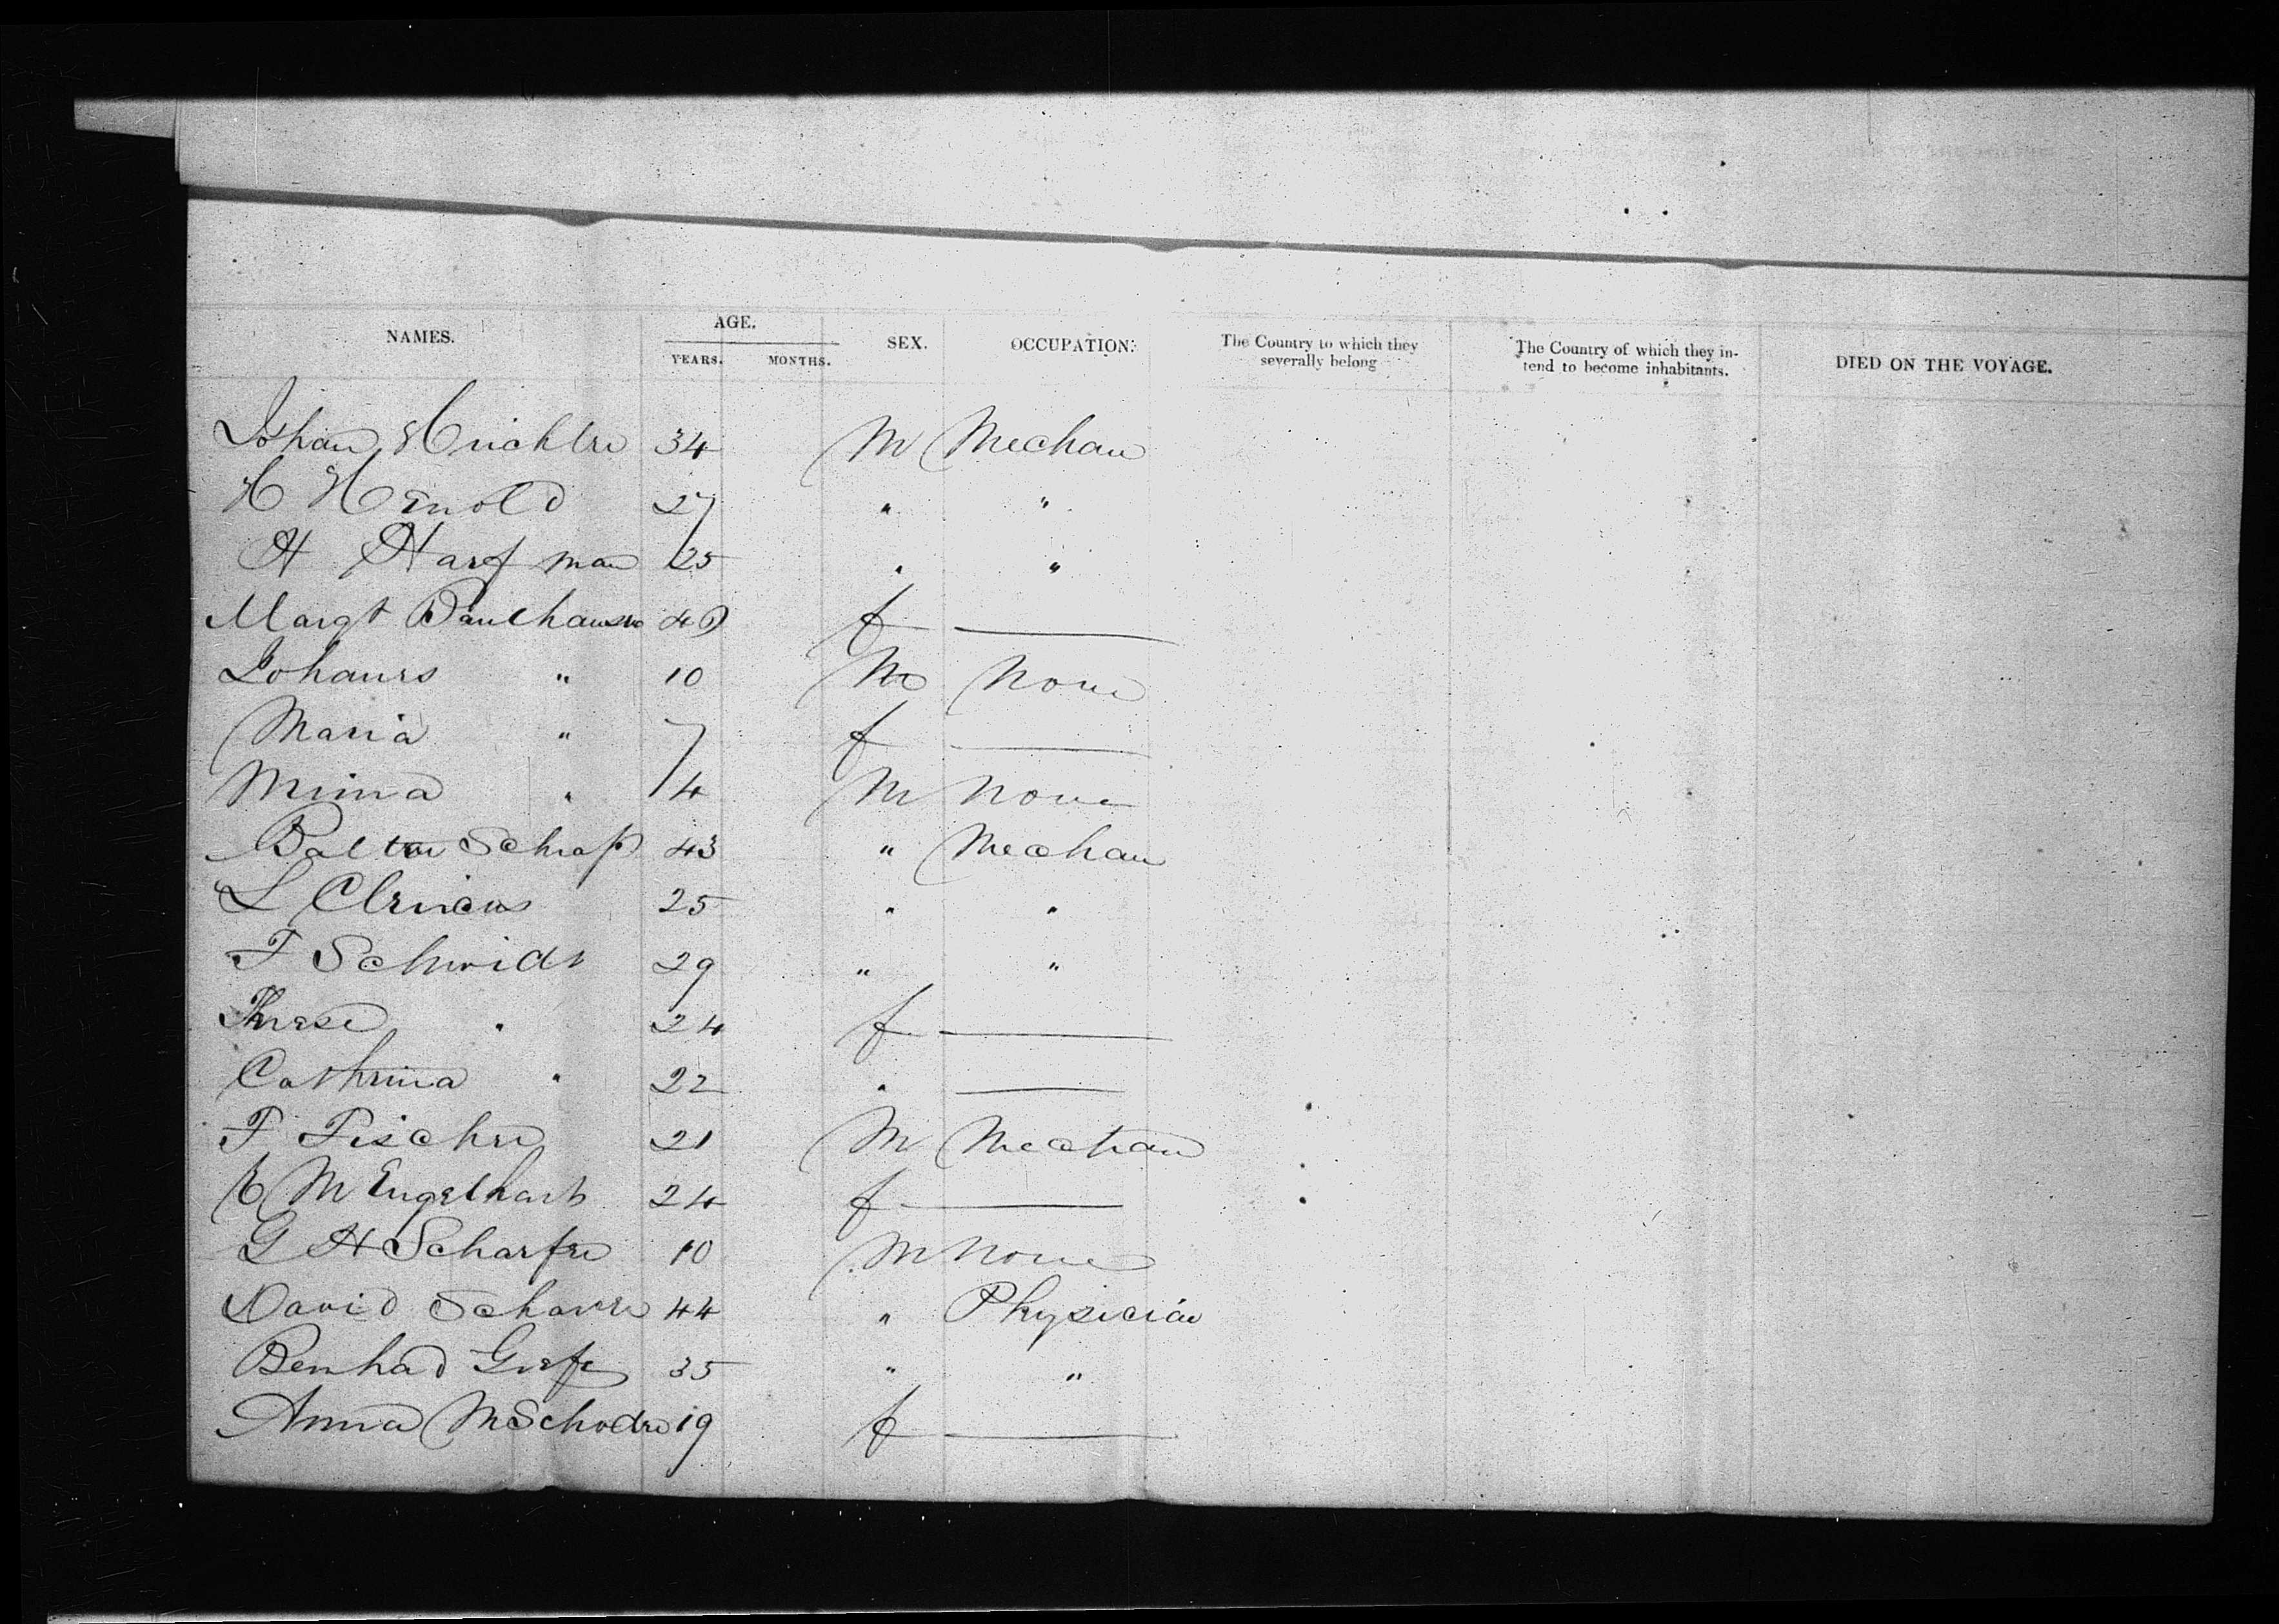 NAMES. AGE. YEARS. MONTHS. SEX. OCCUPATION. The Country to which they severally belong The Country of which they in-tend to become inhabitants. DIED ON THE VOYAGE.
Johan 34 M Mechan
H 27 " "
H Harf man 25 " "
Margt 40 f —
Johanes " 10 M None
Maria " 7 f —
Minna " 4 M None
43 " Mechan
L 25 " "
F Schmidt 29 " "
Therese " 24 f —
Cathrina " 22 " —
F Fischer 21 M Mechan
E M Engelhart 24 f —
G H Scharfer 10 M None
David 44 " Physician
Benhad Grefe 35 " "
Anna M 19 f —